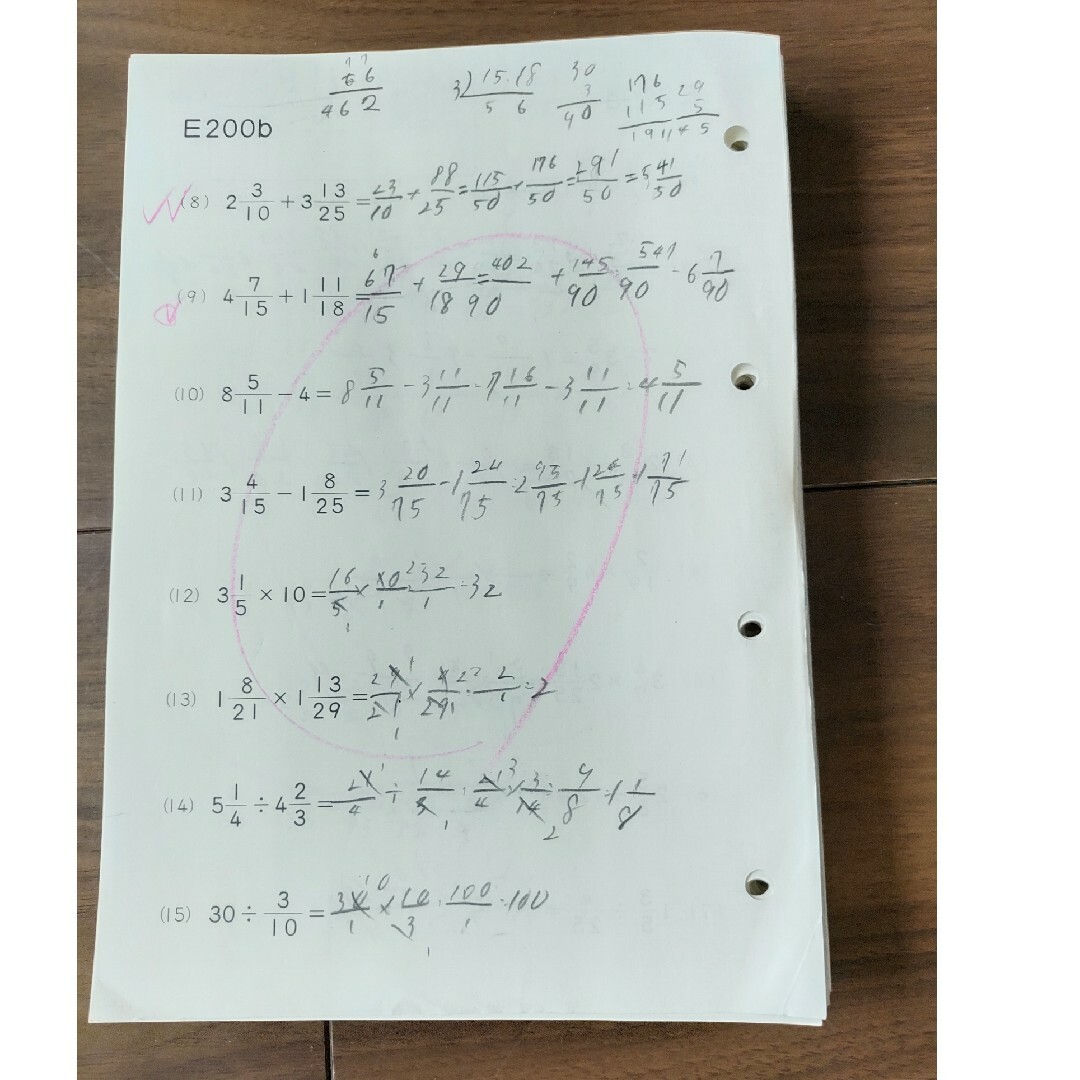 66
462
3)15.18
5 6
30
3
90
176
115
191
29
5
145
E200b
(8) 2 3/10 + 3 13/25 = 23/10 + 88/25 = 115/50 + 176/50 = 291/50 = 5 41/50
(9) 4 7/15 + 1 11/18 = 67/15 + 29/18 = 402/90 + 145/90 = 547/90 = 6 7/90
(10) 8 5/11 - 4 = 8 5/11 - 3 11/11 = 7 16/11 - 3 11/11 = 4 5/11
(11) 3 4/15 - 1 8/25 = 3 20/75 - 1 24/75 = 2 95/75 - 1 24/75 = 1 71/75
(12) 3 1/5 × 10 = 16/5 × 10/1 = 32/1 = 32
(13) 1 8/21 × 1 13/29 = 29/21 × 42/29 = 2/1 = 2
(14) 5 1/4 ÷ 4 2/3 = 21/4 ÷ 14/3 = 21/4 × 3/14 = 9/8 = 1 1/8
(15) 30 ÷ 3/10 = 30/1 × 10/3 = 100/1 = 100